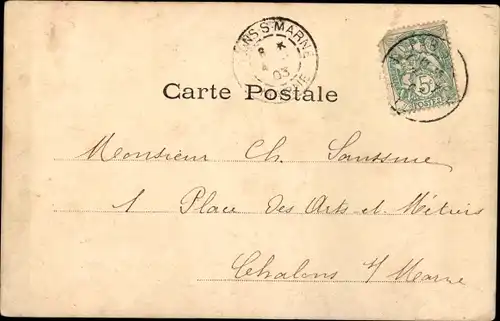 ONS S MARNE
03
Carte Postale
5
POSTES
Monsieur Ch.
1 Place des Arts et Métiers
Chalons s/ Marne